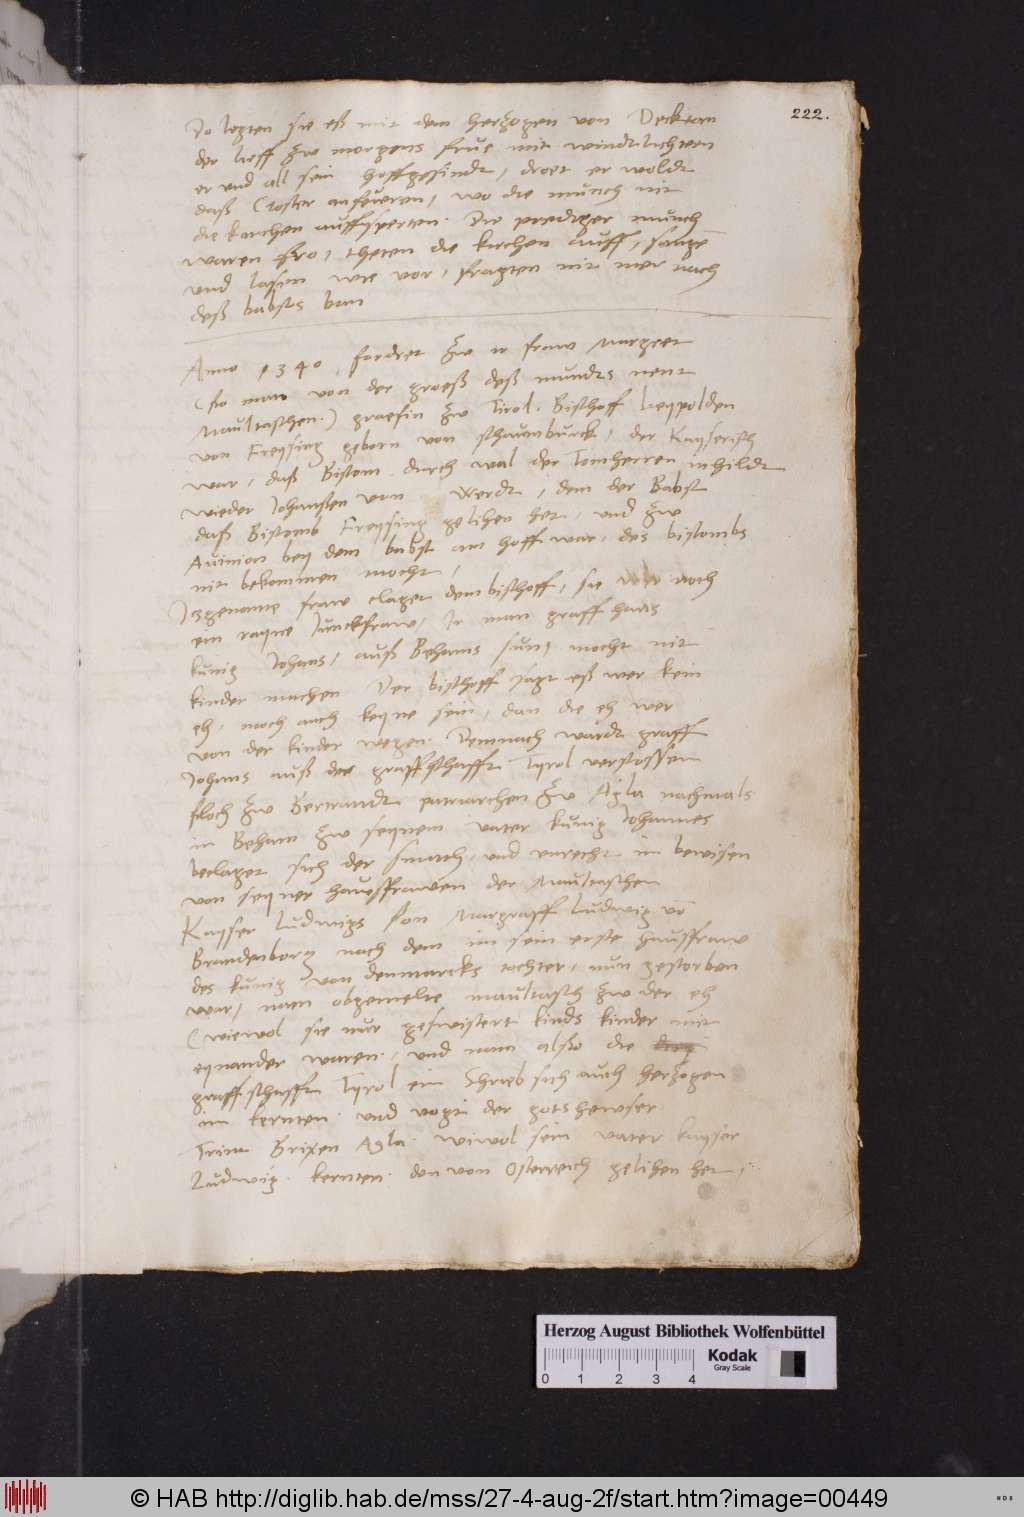 222.
Do legten sie eß mit dem herzogen von Decktan
der lieff zw morgens frue mit windtlichtern
er und all sein hoffgesindt, droet er woldt
daß Closter anfeueren, wo die munch nit
die kirchen auffsperten. Die prediger munch
waren fro, theten die kirchen auff, sange
und lasen wie vor, fragten nit mer nach
deß babsts ban
Anno 1340, fordret zw ir fraw Margret
(so man von der groeß deß mundts nent
Maultaschen.) graefin zw Tirol. Bischoff Leypolden
von Freysing geborn von schaumburck, der Kayserisch
war, daß Bistom durch wal der Tomherren inhildt
wieder Johansen von Werdt, dem der Babst
daß Bistomb Freysing gelihen het, und zw
Auinion bey dem babst am hoff war, des bistombs
nit bekommen mocht,
Izgenante fraw claget dem bischoff, sie wer noch
ein rayne Junckfraw, Ir man graff hans
kunig Johans, auß Behams sun, mocht nit
kinder machen Der bischoff sagt eß wer kein
eh, moch auch keyne sein, dan die eh wer
von der kinder wegen. Demnach wardt graff
Johans auß der graffschafft Tyrol verstossen
floch zw Bertrandt patriarchen zw Agla nachmals
in Beham zw seynem vater kunig Johannes
beclaget sich der smach, und unrecht im bewisen
von seyner hausfrawen der Maultaschen
Kayser Ludwigs son Margraff Ludwig vo
Brandenborg nach dem im sein erste hausfraw
des kunig von denmarcks tochter, nun gestorben
war, nam obgemelte maultasch zw der eh
(wiewol sie nur geswistert kinds kinder mit
eynander waren., und nam also die
graffschafft Tyrol ein Schrieb sich auch herzogen
im kernten. und vogt der gotshewser
Trint Brixen Agla. wiwol sein vater kayser
Ludwig. kernten. den von Osterreich gelihen het,
Herzog August Bibliothek Wolfenbüttel
Kodak
Gray Scale
0 1 2 3 4
© HAB http://diglib.hab.de/mss/27-4-aug-2f/start.htm?image=00449